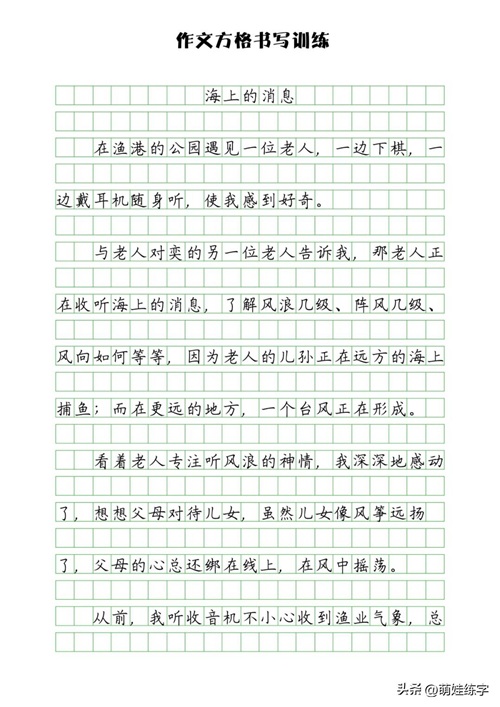 作文方格书写训练
海上的消息
在渔港的公园遇见一位老人，一边下棋，一
边戴耳机随身听，使我感到好奇。
与老人对奕的另一位老人告诉我，那老人正
在收听海上的消息，了解风浪几级、阵风几级、
风向如何等等，因为老人的儿孙正在远方的海上
捕鱼；而在更远的地方，一个台风正在形成。
看着老人专注听风浪的神情，我深深地感动
了，想想父母对待儿女，虽然儿女像风筝远扬
了，父母的心总还绑在线上，在风中摇荡。
从前，我听收音机不小心收到渔业气象，总
头条 @萌娃练字